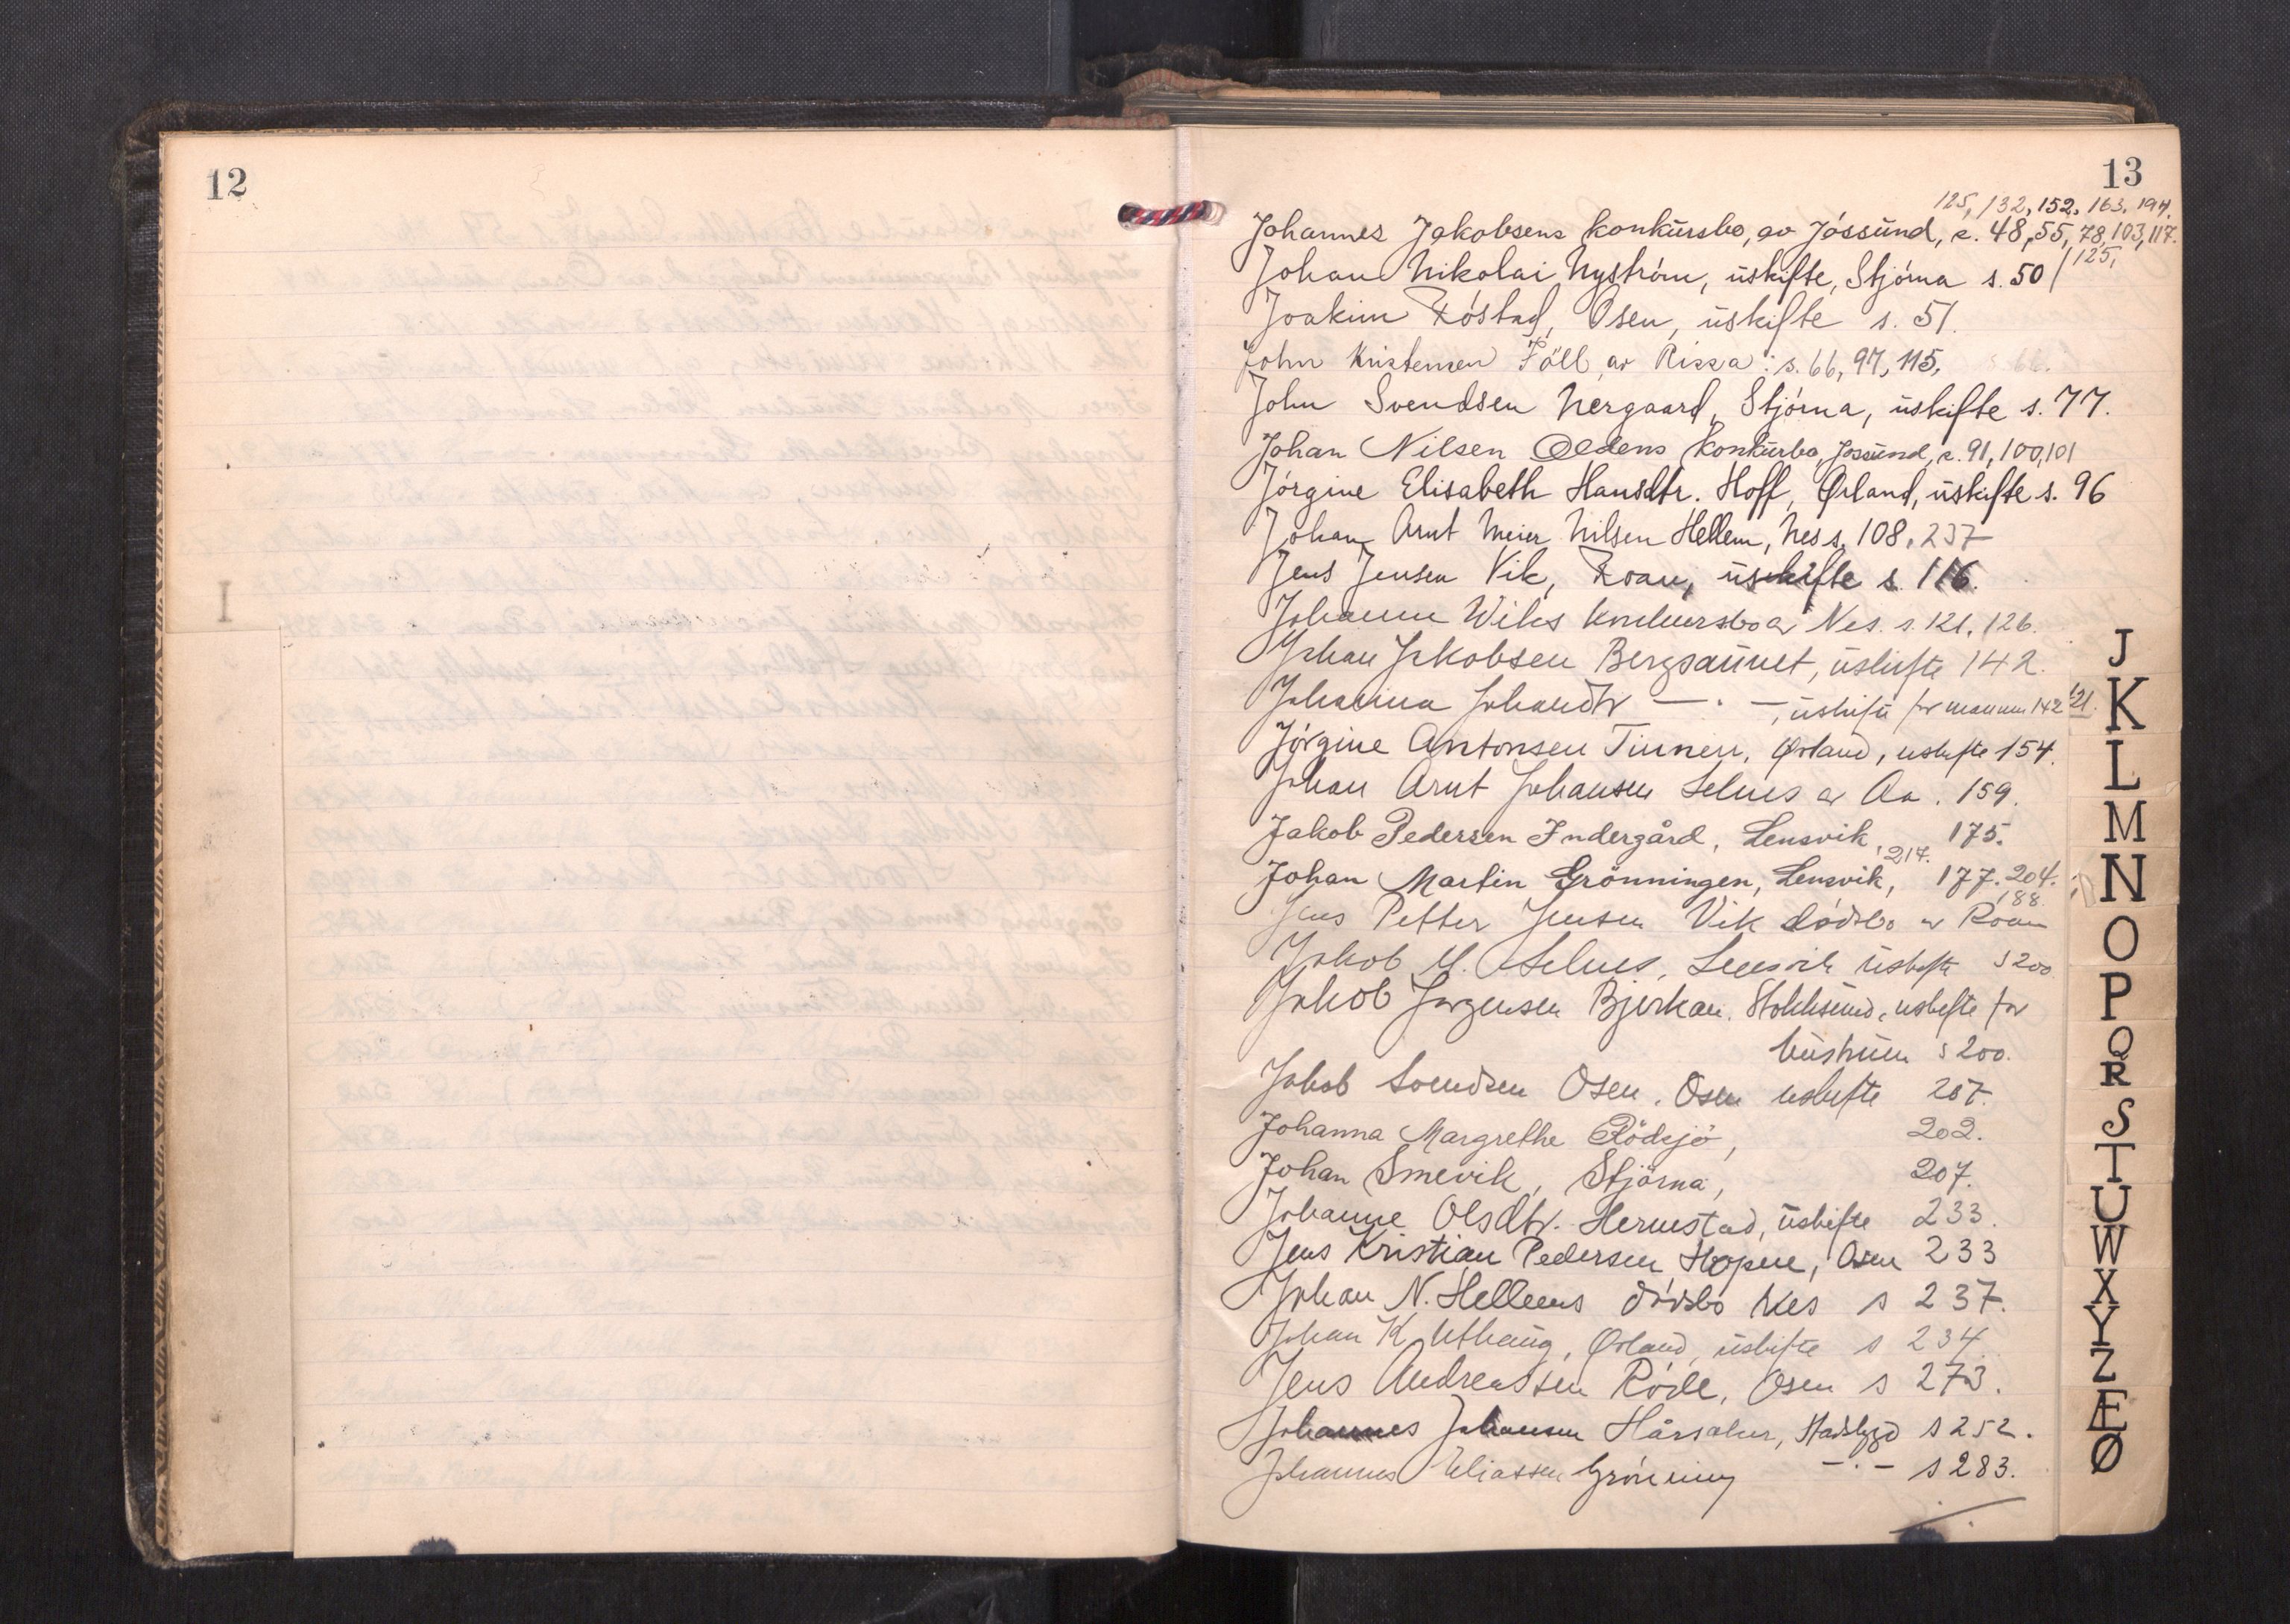 12
I
13
125, 132, 152, 163, 194.
Johannes Jakobsens konkursbo, av Jössund, s. 48, 55, 78, 103, 117.
125,
Johan Nikolai Nyström, uskifte, Stjörna s. 50
Joakim Röstad, Osen, uskifte s. 51.
John Kristensen Föll av Rissa: s. 66, 97, 115,
John Svendsen Nergaard, Stjörna, uskifte s. 77.
Johan Nilsen Oldens konkurbo, Jössund, s. 91, 100, 101
Jörgine Elisabeth Hansdtr. Hoff, Ørland, uskifte s. 96
Johan Arnt Meier Nilsen Hellem, Nes s. 108, 237
Jens Jensen Vik, Roan, uskifte s. 116.
Johann Wiks konkursbo av Nes. s. 121, 126.
Johan Jakobsen Bergsaunet, uskifte 142.
Johanna Johandtr — · —, uskifte for mannen 142 121.
Jörgine Antonsen Tinnen, Ørland, uskifte 154.
Johan Arnt Johansen Selnes av Aa. 159.
Jakob Pedersen Indergård, Lensvik, 175.
217.
Johan Martin Grönningen, Lensvik, 177. 204.
188.
Jens Petter Jensen Vik dödsbo av Roan
Jakob M. Selnes, Lensvik uskifte s 200
Jakob Jörgensen Bjerkan. Stokksund, uskifte for
hustruen s 200.
Jakob Svendsen Osen. Osen uskifte 207.
Johanna Margrethe Rödsjö, 202.
Johan Smevik, Stjörna, 207.
Johanne Olsdtr. Hernstad, uskifte 233.
Jens Kristian Pedersen Hopen, Osen 233
Johan N. Hellems dödsbo Nes s 237.
Johan K. Uthaug, Ørland, uskifte s 234
Jens Andreassen Röde, Osen s 273.
Johannes Johansen Hårsaker, Stadsbygd s 252.
Johannes Eliassen Gröning — · — s 283.
J
K
L
M
N
O
P
Q
R
S
T
U
W
X
Y
Z
Æ
Ø